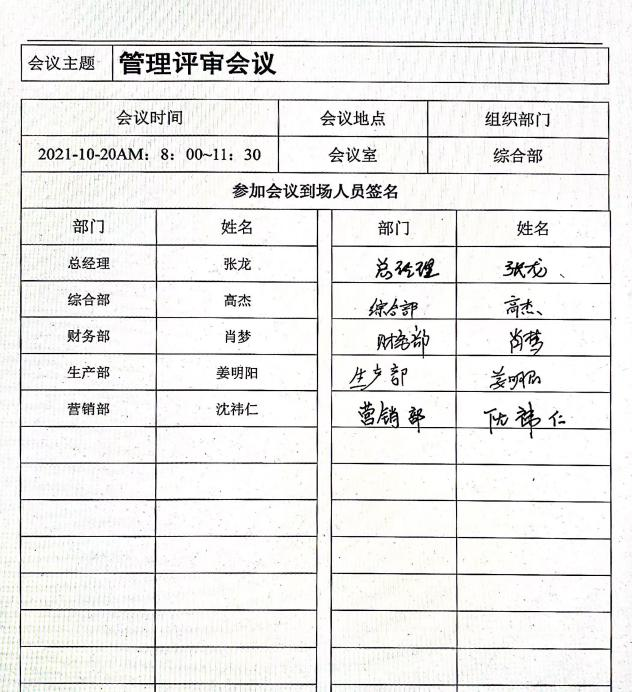 会议主题 管理评审会议
会议时间 会议地点 组织部门
2021-10-20AM：8：00~11：30 会议室 综合部
参加会议到场人员签名
部门 姓名 部门 姓名
总经理 张龙 总经理 张龙、
综合部 高杰 综合部 高杰、
财务部 肖梦 财务部 肖梦
生产部 姜明阳 生产部 姜明阳
营销部 沈祎仁 营销部 沈祎仁